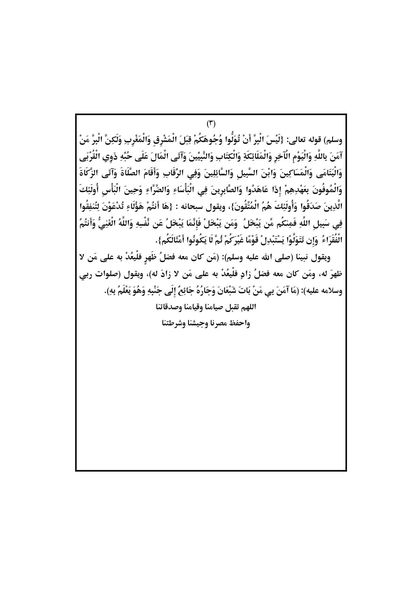 (٣)
وسلم) قوله تعالى: {لَيْسَ الْبِرَّ أَنْ تُوَلُّوا وُجُوهَكُمْ قِبَلَ الْمَشْرِقِ وَالْمَغْرِبِ وَلَكِنَّ الْبِرَّ مَنْ
آمَنَ بِاللَّهِ وَالْيَوْمِ الْآخِرِ وَالْمَلَائِكَةِ وَالْكِتَابِ وَالنَّبِيِّينَ وَآتَى الْمَالَ عَلَى حُبِّهِ ذَوِي الْقُرْبَى
وَالْيَتَامَى وَالْمَسَاكِينَ وَابْنَ السَّبِيلِ وَالسَّائِلِينَ وَفِي الرِّقَابِ وَأَقَامَ الصَّلَاةَ وَآتَى الزَّكَاةَ
وَالْمُوفُونَ بِعَهْدِهِمْ إِذَا عَاهَدُوا وَالصَّابِرِينَ فِي الْبَأْسَاءِ وَالضَّرَّاءِ وَحِينَ الْبَأْسِ أُولَئِكَ
الَّذِينَ صَدَقُوا وَأُولَئِكَ هُمُ الْمُتَّقُونَ}، ويقول سبحانه : {هَا أَنتُمْ هَؤُلَاءِ تُدْعَوْنَ لِتُنفِقُوا
فِي سَبِيلِ اللَّهِ فَمِنكُم مَّن يَبْخَلُ وَمَن يَبْخَلْ فَإِنَّمَا يَبْخَلُ عَن نَّفْسِهِ وَاللَّهُ الْغَنِيُّ وَأَنتُمُ
الْفُقَرَاءُ وَإِن تَتَوَلَّوْا يَسْتَبْدِلْ قَوْمًا غَيْرَكُمْ ثُمَّ لَا يَكُونُوا أَمْثَالَكُم}.
ويقول نبينا (صلى الله عليه وسلم): (مَن كان معه فضلُ ظَهرٍ فلْيعُدْ به على مَن لا
ظهرَ له، ومَن كان معه فضلُ زادٍ فلْيعُدْ به على مَن لا زادَ له)، ويقول (صلوات ربي
وسلامه عليه): (مَا آمَنَ بِي مَنْ بَاتَ شَبْعَانَ وَجَارُهُ جَائِعٌ إِلَى جَنْبِهِ وَهُوَ يَعْلَمُ بِهِ).
اللهم تقبل صيامنا وقيامنا وصدقاتنا
واحفظ مصرنا وجيشنا وشرطتنا